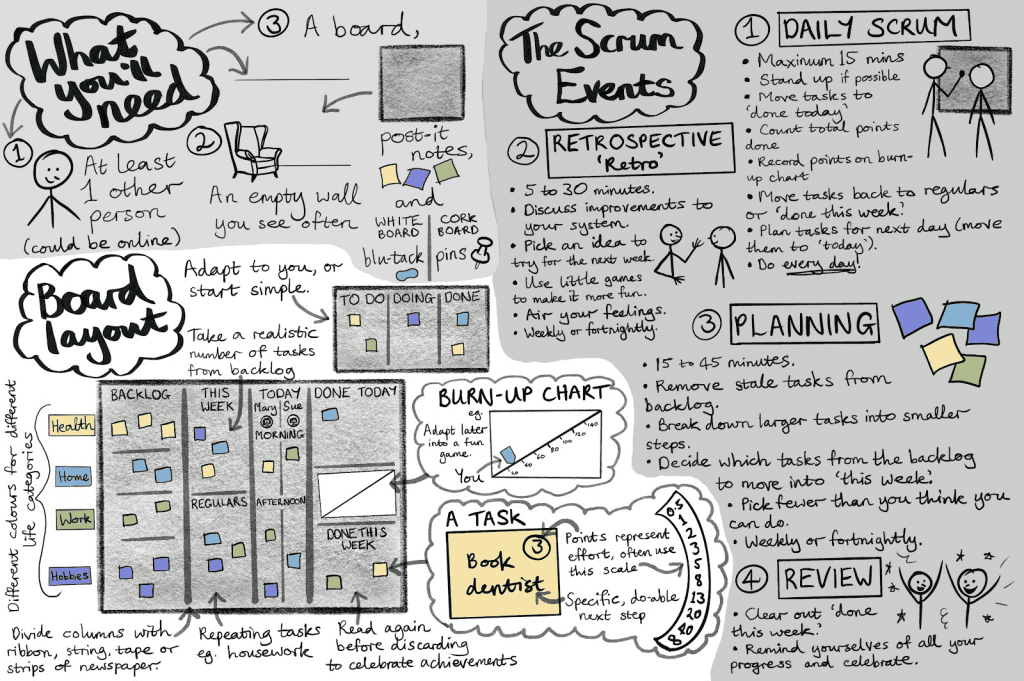 What
you'll
need
① At least
1 other
person
(could be online)
②
An empty wall
you see often
③ A board,
post-it
notes,
and
WHITE
BOARD
blu-tack
CORK
BOARD
pins
Board
layout
Adapt to you, or
start simple.
TO DO
DOING
DONE
Take a realistic
number of tasks
from backlog
Different colours for different
life categories
Health
Home
Work
Hobbies
BACKLOG
THIS
WEEK
REGULARS
TODAY
Mary Sue
MORNING
AFTERNOON
DONE TODAY
DONE THIS
WEEK
Divide columns with
ribbon, string, tape or
strips of newspaper.
Repeating tasks
eg. housework
Read again
before discarding
to celebrate achievements
BURN-UP CHART
eg.
Adapt later
into a fun
game.
You
20
40
60
80
100
120
140
A TASK
③
Book
dentist
Points represent
effort, often use
this scale
Specific, do-able
next step
0.5
1
2
3
5
8
13
20
40
∞
The Scrum
Events
① DAILY SCRUM
• Maximum 15 mins
• Stand up if possible
• Move tasks to
'done today'
• Count total points
done
• Record points on burn-
up chart
• Move tasks back to regulars
or 'done this week'.
• Plan tasks for next day (move
them to 'today').
• Do every day!
② RETROSPECTIVE
'Retro'
• 5 to 30 minutes.
• Discuss improvements to
your system.
• Pick an idea to
try for the next week.
• Use little games
to make it more fun.
• Air your feelings.
• Weekly or fortnightly.
③ PLANNING
• 15 to 45 minutes.
• Remove stale tasks from
backlog.
• Break down larger tasks into smaller
steps.
• Decide which tasks from the backlog
to move into 'this week'.
• Pick fewer than you think you
can do.
• Weekly or fortnightly.
④ REVIEW
• Clear out 'done
this week'.
• Remind yourselves of all your
progress and celebrate.